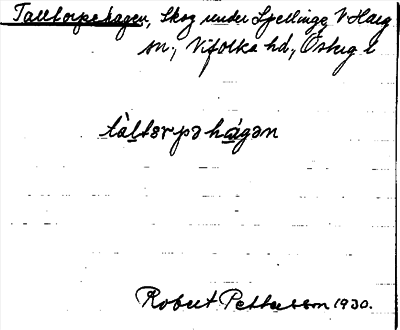 Talltorpehagen, Skog under Spellinge V Harg
sn., Vifolka hd, Östug l
tàltərpəhágən
Robert Pettersson 1930.